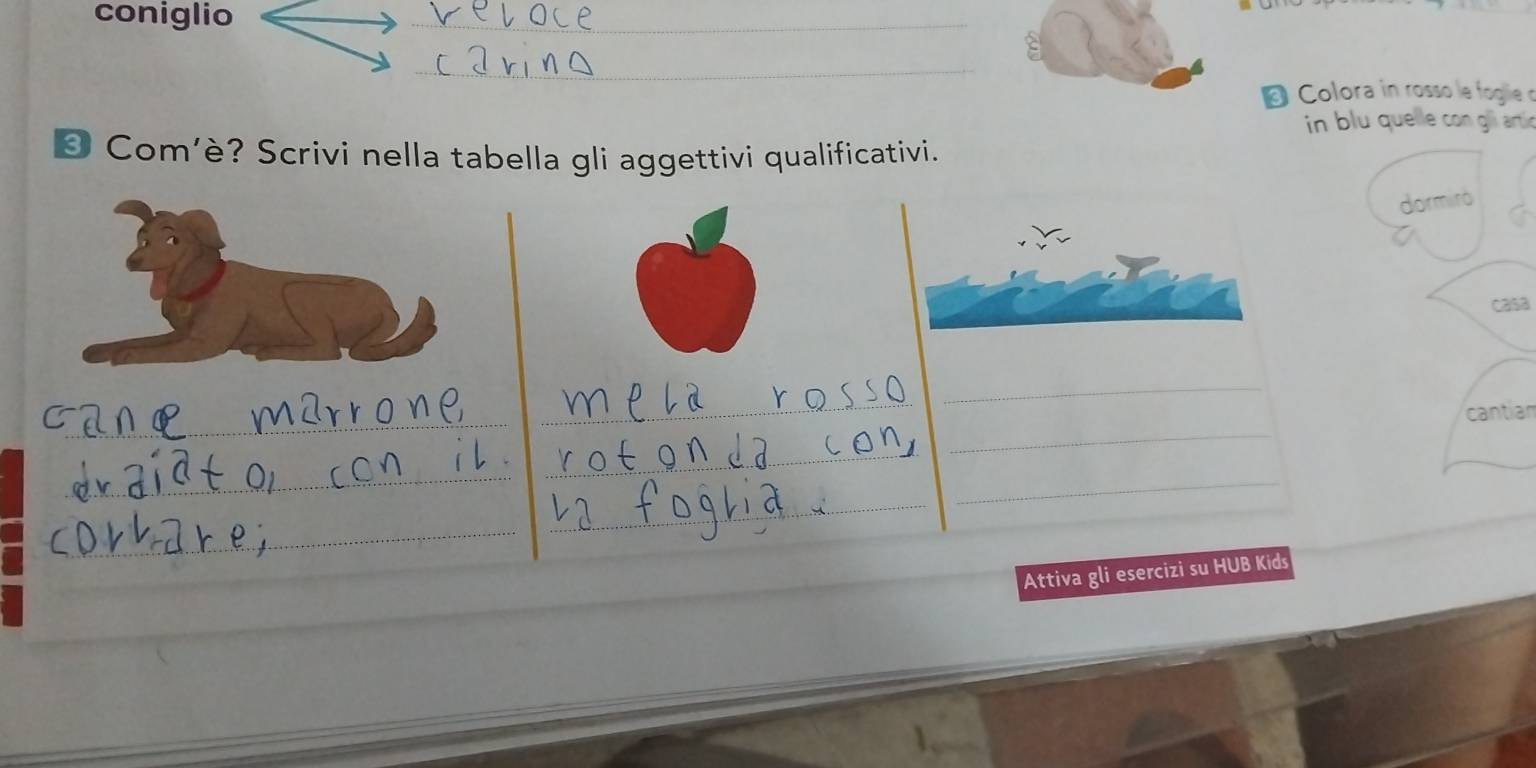 coniglio
veloce
carino
3 Com'è? Scrivi nella tabella gli aggettivi qualificativi.
cane marrone,
draiato, con il
corrare;
mela rosso
rotonda con,
la foglia.
Attiva gli esercizi su HUB Kids
3 Colora in rosso le foglie
in blu quelle con gli
dormirò
casa